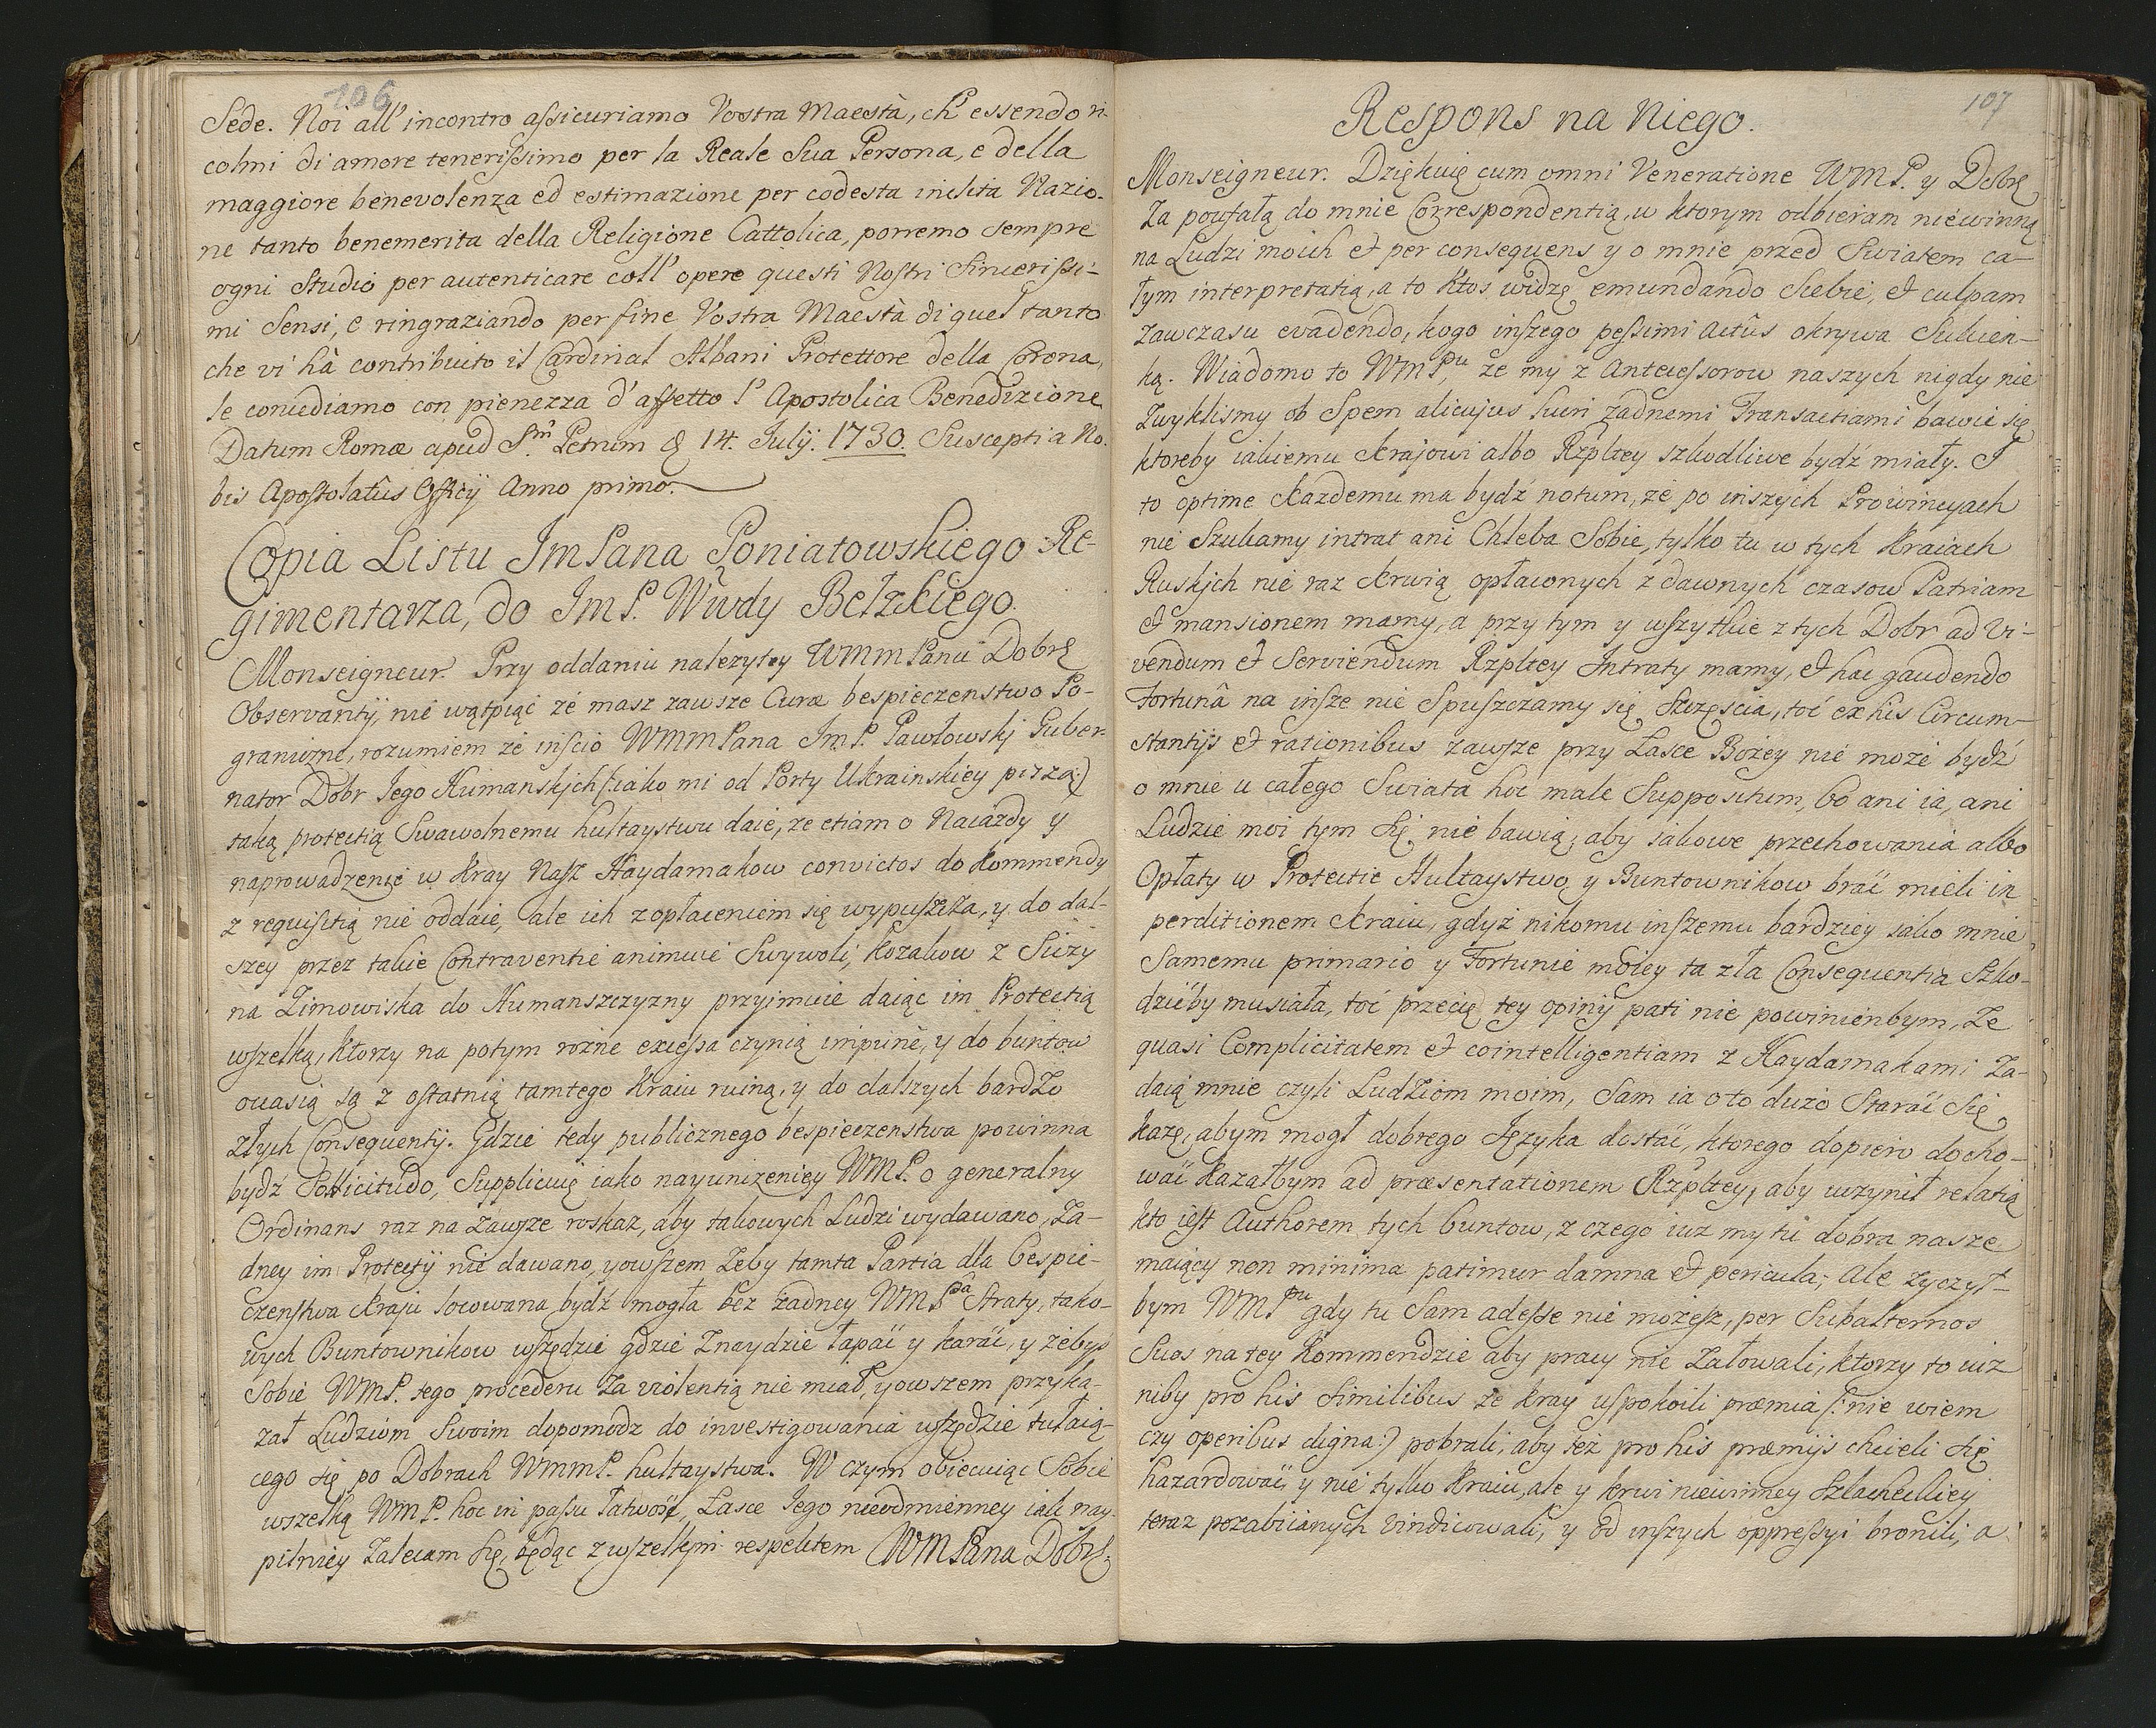 106
Sede. Noi all' incontro assicuriamo Vostra Maestà, ch' essendo ri-
colmi di amore tenerissimo per la Reale Sua Persona, e della
maggiore benevolenza ed estimazione per codesta inclita Nazio-
ne tanto benemerita della Religione Cattolica, porremo sempre
ogni Studio per autenticare coll' opere questi Nostri Sincerissi-
mi Sensi, e ringraziando per fine Vostra Maestà di quel tanto
che vi hà contribuito il Cardinal Albani Protettore della Corona,
le concediamo con pienezza d' affetto l' Apostolica Benedizione
Datum Romæ apud S.m Petrum 14. Julÿ. 1730. Suscepti a No-
bis Apostolatûs Officÿ Anno primo.
Copia Listu JmPana Poniatowskiego Re-
gimentarza, do JmP. Wwdy Bełzkiego.
Monseigneur. Przy oddaniu należytey WMMPanu Dobrę
Observantÿ, nie wątpiąc że masz zawsze Curæ bespieczenstwo Po-
graniczne, rozumiem że inscio WMMPana JmP. Pawłowskj Guber-
nator Dobr Jego Humanskjch (:iako mi od Porty Ukrainskiey piszą:)
taką protectią Swawolnemu hultaystwu daie, że etiam o Naiazdy y
naprowadzenie w Kray Nasz Haydamakow convictos do Kommendy
z requisitią nie oddaie, ale ich z opłaceniem się wypuszcza, y do dal-
szey przez takie Contraventie animuie Swywoli, Kozakow z Siczy
na Zimowiska do Humanszczyzny przyimuie daiąc im Protectią
wszelką, ktorzy na potym rożne excessa czynią impunè, y do buntow
ocasią są z ostatnią tamtego Kraiu ruiną, y do dalszych bardzo
złych Consequentÿ. Gdzie tedy publicznego bespieczenstwa powinna
bydź Sollicitudo, Supplicuię iako nayuniżeniey WMP. o generalny
Ordinans raz na zawsze roskaz, aby takowych Ludzi wydawano, Ża-
dney im Protectÿ nie dawano, yowszem żeby tamta Partia dla bespie-
czenstwa Kraju locowana bydź mogła bez żadney WMPPa Straty, tako-
wych Buntownikow wszędzie gdzie znaydzie łapać y karać, y żebyś
Sobie WMP. tego procederu za violentią nie miał, yowszem przyka-
zał Ludziom Swoim dopomodz do investigowania wszędzie tułaią-
cego się po Dobrach WMMP. hultaystwa. W czym obiecuiąc Sobie
wszelką WMP. hoc in passu łatwość, Łasce Jego nieodmienney iak nay-
pilniey Zalecam się, będąc z wszelkjm respektem WMPana Dobrę
107
Respons na Niego.
Monseigneur. Dziękuię cum omni Veneratione WMP. y Dobrę
Za poufałą do mnie Correspondentią, w ktorym odbieram niewinną
na Ludzi moich et per consequens y o mnie przed Swiatem ca-
łym interpretatią, a to ktos widzę emundando Siebie, et culpam
zawczasu evadendo, kogo inszego pessimi actûs okrywa Sukien-
ką. Wiadomo to WMPPu, że my z Antecessorow naszych nigdy nie
Zwyklismy ob Spem alicujus lucri żadnemi Transactiami bawić się,
ktoreby iakiemu Krajowi albo Rzpltey szkodliwe bydź miały. J
to optime Każdemu ma bydź notum, że po inszych Prowincyach
nie Szukamy intrat ani Chleba Sobie, tylko tu w tych Kraiach
Ruskjch nie raz Krwią opławonych z dawnych czasow Patriam
et mansionem mamy, a przy tym y wszytkie z tych Dobr ad Vi-
vendum et Serviendum Rzpltey Jntraty mamy, et hac gaudendo
Fortunâ na insze nie Spuszczamy się Szczęścia, toć ex his Circum-
stantÿs et rationibus zawsze przy Łasce Bożey nie może bydź
o mnie u całego Swiata hoc male Suppositum, bo ani ia, ani
Ludzie moi tym się nie bawią, aby jakowe przechowania albo
Opłaty w Protectie Hultaystwo y Buntownikow brać mieli in
perditionem Kraiu, gdyż nikomu inszemu bardziey jako mnie
Samemu primario y Fortunie moiey ta zła Consequentia Szko-
dziećby musiała, toć przecię tey opinÿ pati nie powinienbym, że
quasi Complicitatem et cointelligentiam z Haydamakami Za-
daią mnie czyli Ludziom moim, Sam ia o to dużo Starać się
każę, abym mogł dobrego Języka dostać, ktorego dopiero docho-
wać kazałbym ad præsentationem Rzpltey, aby uczynił relatią
kto jest Authorem tych buntow, z czego iuz my tu dobra nasze
maiący non minima patimur damna et pericula; Ale życzył-
bym WMPPu gdy tu Sam adesse nie możesz, per Subalternos
Suos na tey Kommendzie aby pracy nie żałowali, ktorzy to iuż
niby pro his similibus że kray uspokoili præmia (:nie wiem
czy operibus digna:) pobrali, aby też pro his præmÿs chcieli się
hazardować, y nie tylko Kraiu, ale y krwi niewinney Szlacheckiey
teraz pozabiianych vindicowali, y od inszych oppressyi bronili, a